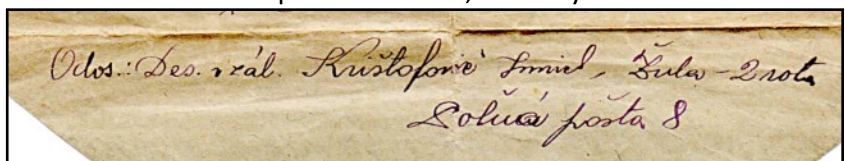 Odos.: Des. v zál. Krištofovič Emiel, Žula - 2 rota
Poľná pošta 8